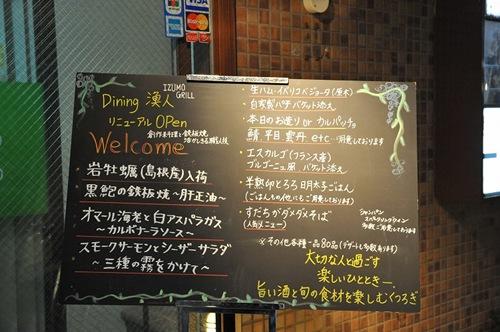 VISA
MasterCard
IZUMO
GRILL
Dining 漁人
リニューアル OPen
創作料理と鉄板焼
Welcome
岩牡蠣(島根産)入荷
黒鮑の鉄板焼〜肝正油〜
オマール海老と白アスパラガス
〜カルボナーラソース〜
スモークサーモンとシーザーサラダ
〜三種の霧をかけて〜
・生ハム・イベリコベジョータ(原木)
・自家製パテ バケット添え
・本日のお造り or カルパッチョ
鯖、平目、雲丹 etc…ご用意しております
・エスカルゴ(フランス産)
ブルゴーニュ風 バケット添え
・半熟卵とろろ明太子ごはん
(ごはんもの他にもご用意しております)
・すだちがダメダメそば
(人気メニュー)
シャンパン
スパークリングワイン
多数ご用意しております
※その他各種一品80品(デザートも多数有ります)
大切な人と過ごす
楽しいひととき…
旨い酒と旬の食材を楽しむくつろぎ